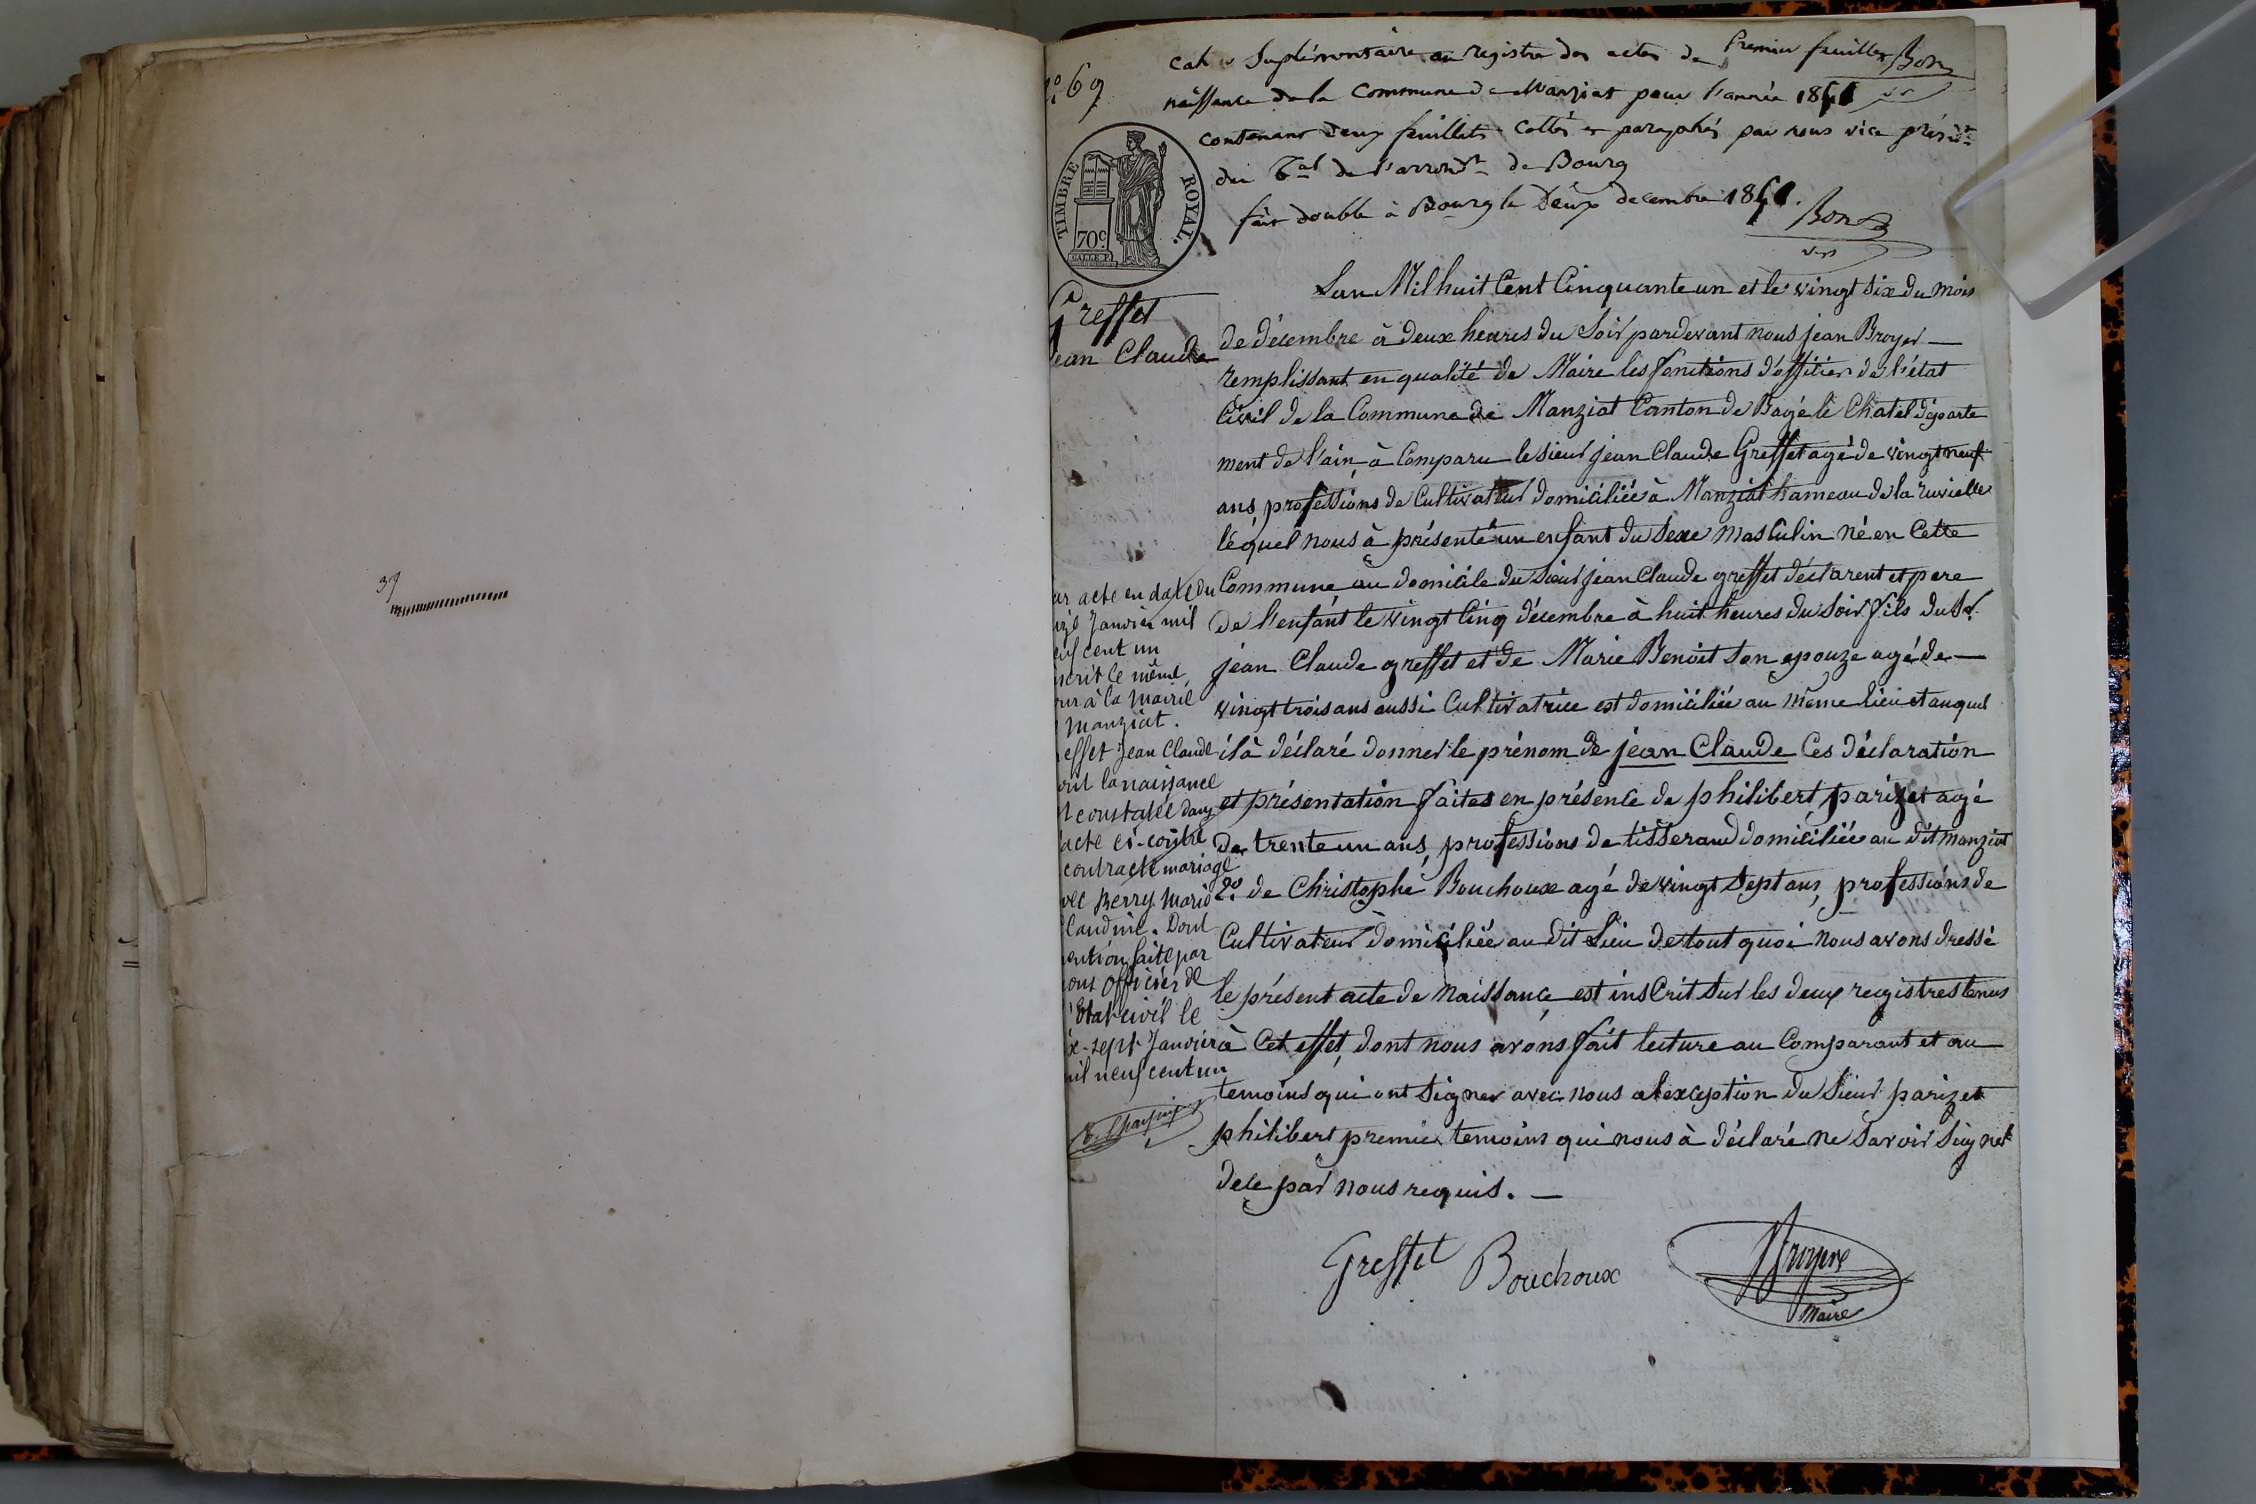 39
N° 69
Premier feuillet Bon
Suplémentaire au registre des actes de
naissance de la Commune de Manziat pour l'année 1851
contenant deux feuillets cottés et paraphés par nous vice présidt
du Tal de l'arrondt de Bourg
fait double à Bourg le deux decembre 1851.
Bon
TIMBRE ROYAL.
70c
Greffet
jean Claude
Lan Mil huit Cent Cinquante un et le vingt Six du Mois
de décembre à deux heures du Soir pardevant nous jean Broyer
remplissant en qualité de Maire les fonctions d'offitier de l'état
Civil de la Commune de Manziat Canton de Bagé le Chatel départe
ment de l'ain à Comparu le Sieur jean Claude Greffet agé de vingt neuf
ans, professions de Cultivateur domiciliée à Manziat hameau de la
léquel nous à présenté un enfant du Sexe Masculin né en Cette
Commune au domicile du Sieur jean Claude greffet déclarent et pere
de l'enfant le vingt Cinq décembre à huit heures du Soir fils du Sr.
jean Claude greffet et de Marie Benoit Son epouze agé de
vingt trois ans aussi Cultivatrice est domiciliée au Même lieu et auquel
il à déclaré donner le prénom de jean Claude Ces déclaration
et présentation faites en présence de philibert parizet agé
de trente un ans, professions de tisserand domiciliée au dit manziat
2° de Christophe Bouchoux agé de vingt Sept ans, professions de
Cultivateur domiciliée au dit Lieu de tout quoi nous avons dressé
le présent acte de Naissance est insCrit Sur les deux registres tenus
à Cet effet, dont nous avons fait lecture au Comparant et au
temoins qui ont Signer avec nous alexception du Sieur parizet
philibert premier temoins qui nous à déclaré ne Savoir Signer
dece par nous requis.
ar acte en date du
ize Janvier mil
euf cent un
nscrit le même
our à la Mairie
Manziat.
reffet Jean Claude
ont la naissance
st constatée dans
acte ci-contre
contracté mariage
vec Berry Marie
laudine. Dont
ention faite par
ous Officier de
l'Etat civil le
ix-sept Janvier
mil neuf cent un
Greffet Bouchoux Broyer
Maire